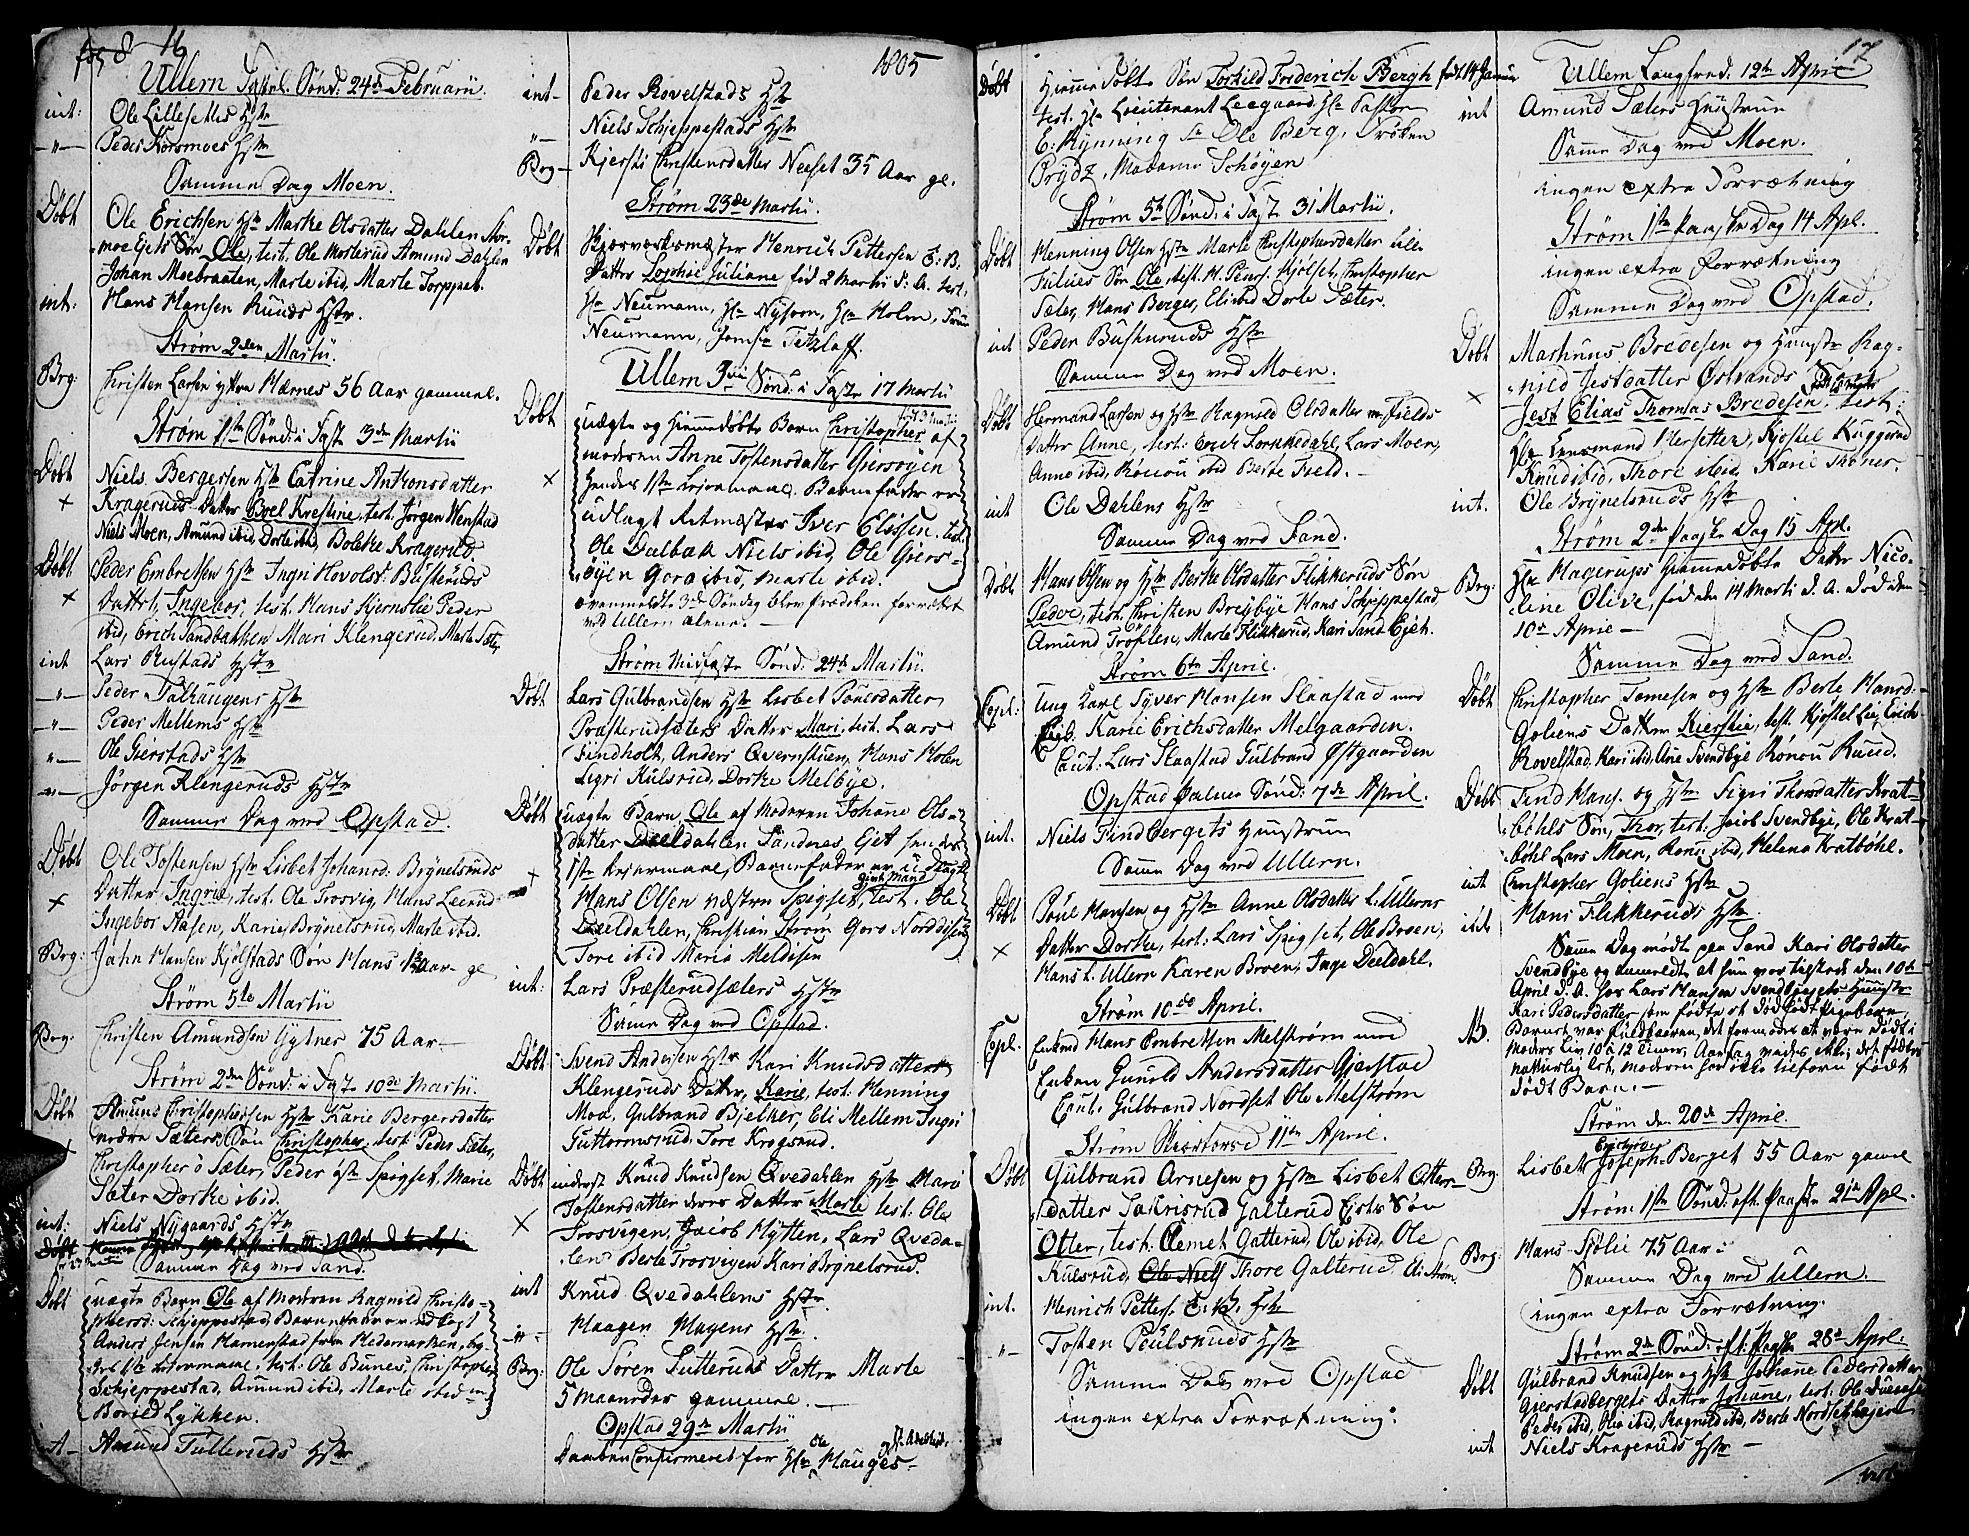 16
1805
Ullern Fastel. Sønd: 24de Februarii
int: Ole Lillesetes Hstr
—"— Peder Korsmoes Hstr
Samme Dag Moen.
Døbt Ole Erichsen Hstr Marte Olsdatter Dahlen
Søn Ole, test. Ole Mosterud Amund Dahlen
Johan Moebraaten, Marte ibid, Marte Torppet.
int: Hans Hansen Ruuds Hstr.
Strøm 2den Martii.
Brg: Christen Larsen yttre Hærnes 56 Aar gammel.
Strøm 1ste Sønd: i Fast 3de Martii
Døbt Niels Bergersen Hstr Catrine Anthonsdatter
Krageruds Datter Boel Kirstine, test. Jørgen Wenstad
Niels Moen, Amund ibid, Dorte ibid, Bolette Kragerud.
Døbt Peder Embretsen Hstr Ingri Hovolsd: Busteruds
Datter, Ingebor, test. Hans Kjernslie Peder
ibid, Erich Sandbakken Mari Klengerud, Marte Sæter
int Lars Rustads Hstr
—"— Peder Falhaugens Hstr
—"— Peder Mellems Hstr
"— Ole Gierstads Hstr
"— Jørgen Klengeruds Hstr
Samme Dag ved Opstad.
Døbt Ole Tostensen Hstr Lisbet Johansd: Brynelsruds
Datter Ingrie, test. Ole Trosvig, Hans Leerud
Ingebor Aasen, Karie Brynelsrud, Marte ibid.
Brg: Jahn Hansen Kjølstads Søn Hans
Strøm 5te Martii
Brg: Christen Amundsen Gygtner 75 Aar
Strøm 2den Sønd: i Fast 10de Martii.
Døbt Amund Christophersen Hstr Karie Bergersdatter
nedre Sæters Søn Christopher, test. Peder Sæter,
Christopher ø Sæter, Peder Spigset, Marie
Sæter Dorte ibid.
int: Niels Nygaards Hstr
Samme Dag ved Sand.
Døbt uægte Barn Ole af Moderen Ragnild Christo-
phersd: Schjeppestad, Barnefader udlagt
Anders Jensen Hamerstad fra Hedemarken, beg-
test: Ole Bunes, Christopher
Schjeppestad, Amund ibid, Marte ibid
Borild Lykken.
Amund Tulleruds Hstr
int— Peder Rovelstads Hstr
"— Niels Schjeppestads Hstr
Brg— Kjersti Christensdatter Neeset 35 Aar ge.
Strøm 23de Martii.
Døbt Henrich Pettersen E. B.
Datter Sophie Juliane fød 2 Martii d: A. test.
Hr Neumann, Hr Nysoon, Hr Holm, Frue
Neumann, Jomfr Tetzlaff.
Ullern 3die Sønd: i Fast 17 Martii
Døbt uægte og Hiemmedøbte Barn Christopher af
moderen Anne Tostensdatter Giersøyen
hendes 1ste Leiermaal. Barnefader er
udlagt Ritmester Iver Elissen. test.
Ole Dalbak Niels ibid, Ole Giers-
øyen Gora ibid, Marte ibid.
ovenmeldte 3de Søndag blev Prædiken forrættet
ved Ullern alene. —
Strøm Midfaste Sønd: 24de Martii.
Døbt Lars Gulbrandsen Hstr Lisbet Povelsdatter
Præsterudsæters Datter Mari, test. Lars
Findholt, Anders Qvernstuen, Hans Holen
Sigri Kulsrud, Dorte Melbye.
Døbt uægte Barn Ole af Moderen Johane Ols-
datter Deeldahlen Sandnes Ejet hendes
1ste Leiermaal, Barnefader er udlagt
gift Mand
Hans Olsen næstre Spigset, test. Ole
Deeldahlen, Christian Strøm Goro Norddisen
Tore ibid Maria Meldisen
int: Lars Præsterudsæters Hstr
Samme Dag ved Opstad.
Døbt Svend Andersen Hstr Kari Knudsdatter
Klengeruds Datter, Karie, test. Henning
Moe, Gulbrand Bjelker, Eli Mellem Ingri
Guttormsrud, Tore Krogsrud.
Døbt Knud Knudsen Qvedahlen Hstr Mari
Tostensdatter deres Datter Marte test. Ole
Trosvigen, Jacob Hytten, Lars Qveda-
len Berte Trosvigen Kari Brynelsrud.
int Knud Qvedahlens Hstr
—"— Haagen Magens Hstr
Brg: Ole Soren Tutteruds Datter Marte
5 Maaneder gammel. —
Opstad 29de Martii
Daaben Confirmeret for Hr Ole Hauges
17
Døbt Hiemmedøbte Søn Torkild Friderich Bergh fød 14 Januar
test. Hr Lieutenant Leegaard Hr Pastor
E: Hynning Hr Ole Berg, Frøken
Prydz, Madame Schøyen
Strøm 5te Sønd: i Fast 31 Martii.
Døbt Henning Olsen Hstr Marte Christophersdatter Lille
Tulies Søn Ole, test. H. Peers. Kjølset, Christopher
Sæter, Hans Berger, Eli ibid Dorte Sæter.
int Peder Busteruds Hstr
Samme Dag ved Moen.
Døbt Hermand Larsen og Hstr Ragnild Olsdatter m. Fields
Datter Anne, test: Erich Sorknedahl, Lars Moen,
Anne ibid, Rønou ibid Berte Field. —
int Ole Dahlens Hstr
Samme Dag ved Sand.
Døbt Hans Olsen og Hstr Berte Olsdatter Flikkeruds Søn
Peder, test. Christen Breysbye Hans Schjeppestad,
Amund Trøflen, Marte Flikkerud, Kari Sand Ejet.
Strøm 6te April.
Copl: Ung Karl Syver Hansen Slaastad med
Pige Karie Erichsdatter Melgaarden.
Caut: Lars Slaastad Gulbrand Østgaarden
Opstad Palme Sønd: 7de April.
int. Niels Findbergets Huustrue
Samme Dag ved Ullern.
Døbt Povl Hansen og Hstr Anne Olsdatter L: Ullerns
Datter Dorte, test: Lars Spigset, Ole Broen,
Hans L. Ullern Karen Broen, Inge Deeldahl.
Strøm 10de April.
Copl. Enkemd Hans Embretsen Melstrøm med
Enken Gunild Andersdatter Gjerstad
Caut: Gulbrand Nordset Ole Melstrøm
Strøm Skiertorsd 11te April.
Døbt Gulbrand Arnesen og Hstr Lisbet Otters-
datter Sachrisrud Galterud Eiets Søn
Otter, test: Clemet Gatterud, Ole ibid, Ole
Kulsrud, Thore Galterud, Eli Strøm.
int. Henrich Petters. E. B. Hstr
"— Tosten Peulsruds Hstr
Samme Dag ved Opstad
ingen extra Forretning.
Ullern Langfred: 12te April
int Amund Sæters Huustrue
Samme Dag ved Moen.
ingen extra Forrætning
Strøm 1ste Paaske Dag 14 Apl.
ingen extra forrætning
Samme Dag ved Opstad.
Døbt Marthinus Bredesen og Huustr Rag-
nild Jestdatter Østvands Søn
Jest Elias Thomas Bredesen, test:
Hr Lensmand Hersetter, Kjøstel Kuggerud
Knud ibid, Thore ibid, Karie Thoner.
int. Ole Brynelsruds Hstr
Strøm 2den Paaske Dag 15 Apl.
Brg: Hr Hagerups Hiemmedøbte Datter Nico-
line Olive, fød den 14 Marti d. A. død den
10de April —
Samme Dag ved Sand.
Døbt Christopher Tomesen og Hstr Berte Hansd:
Goliens Datter Kierstie, test. Kjøstel Lie, Erich
Rovelstad, Kari ibid, Ane Svendbye Rønou Ruud.
Døbt Find Hans. og Hstr Sigri Thorsdatter Krat-
bøhls Søn, Thor, test: Jacob Svendbye, Ole Krat-
bøhl Lars Moen, Ronu ibid, Helena Kratbøhl.
int Christopher Goliens Hstr
int Hans Flikkeruds Hstr.
Samme Dag mødte paa Sand Kari Olsdatter
Svendbye og anmeldte at hun var tilstede den 10de
April d. A. hos Lars Hansen Svendbyeeiets Huustr
Kari Pedersdatter som fødte et dødfødt Pigebarn,
NB. Barnet var fuldbaaren, det formodes at være dødt i
Moders Liv 10 à 12 Timer, Aarsag vides ikke; det fødtes
naturlig let, moderen har ikke tilforn født
dødt Barn. —
Strøm den 20de April.
Brg: Lisbet Joseph-Berget 55 Aar gamle
Strøm 1ste Sønd: eft. Paaske 21de Apl.
Brg: Hans Sjølie 75 Aar
Samme Dag ved Ullern.
ingen extra Forrætning.
Strøm 2de Sønd: eft: Paaske 28de April.
Døbt Gulbrand Knudsen og Hstr Johane Pedersdatter
Gierstadbergets Datter Johane, test: Ole
Peder ibid, Olea ibid, Ragnild ibid, Berte Nordset
int Niels Krageruds Hstr —